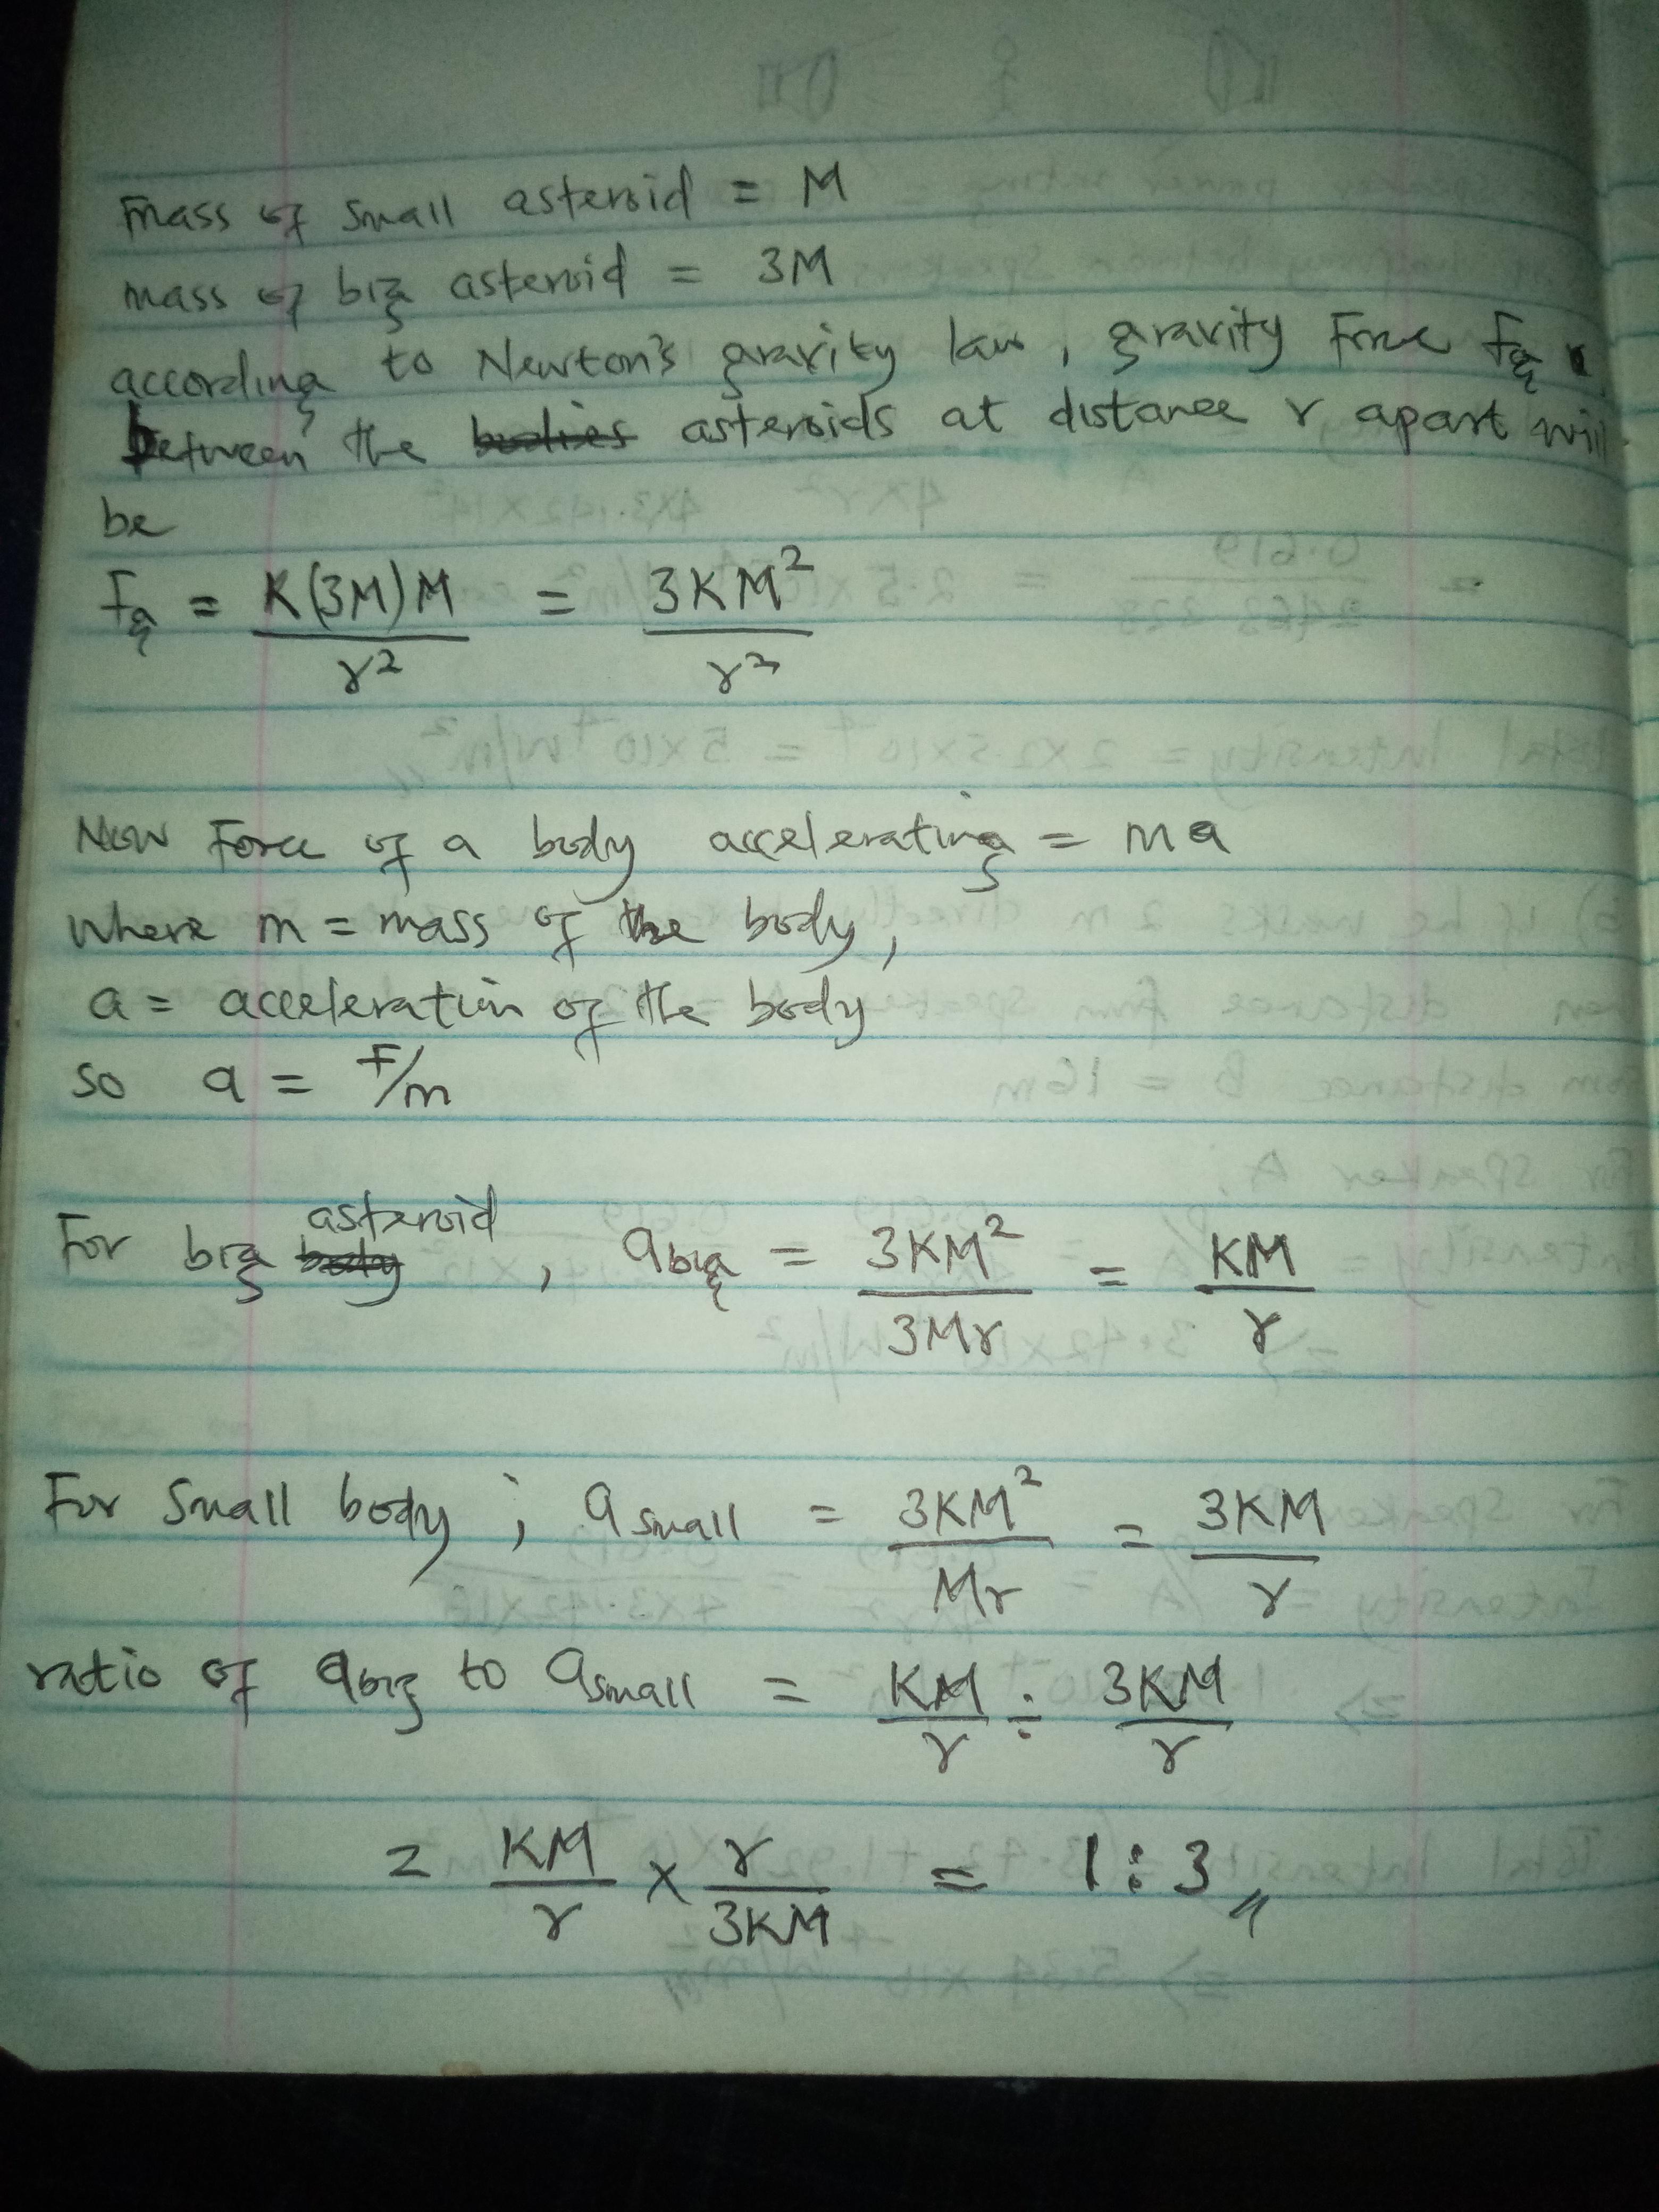 mass of small asteroid = M
mass of big asteroid = 3M
according to Newton's gravity law, gravity Force Fg
between the bodies asteroids at distance r apart will
be
Fg = K(3M)M / r² = 3KM² / r²
Now Force of a body accelerating = ma
where m = mass of the body,
a = acceleration of the body
so a = F/m
For big body asteroid, abig = 3KM² / 3Mr = KM / r
For small body; asmall = 3KM² / Mr = 3KM / r
ratio of abig to asmall = KM / r ÷ 3KM / r
= KM / r × r / 3KM = 1:3